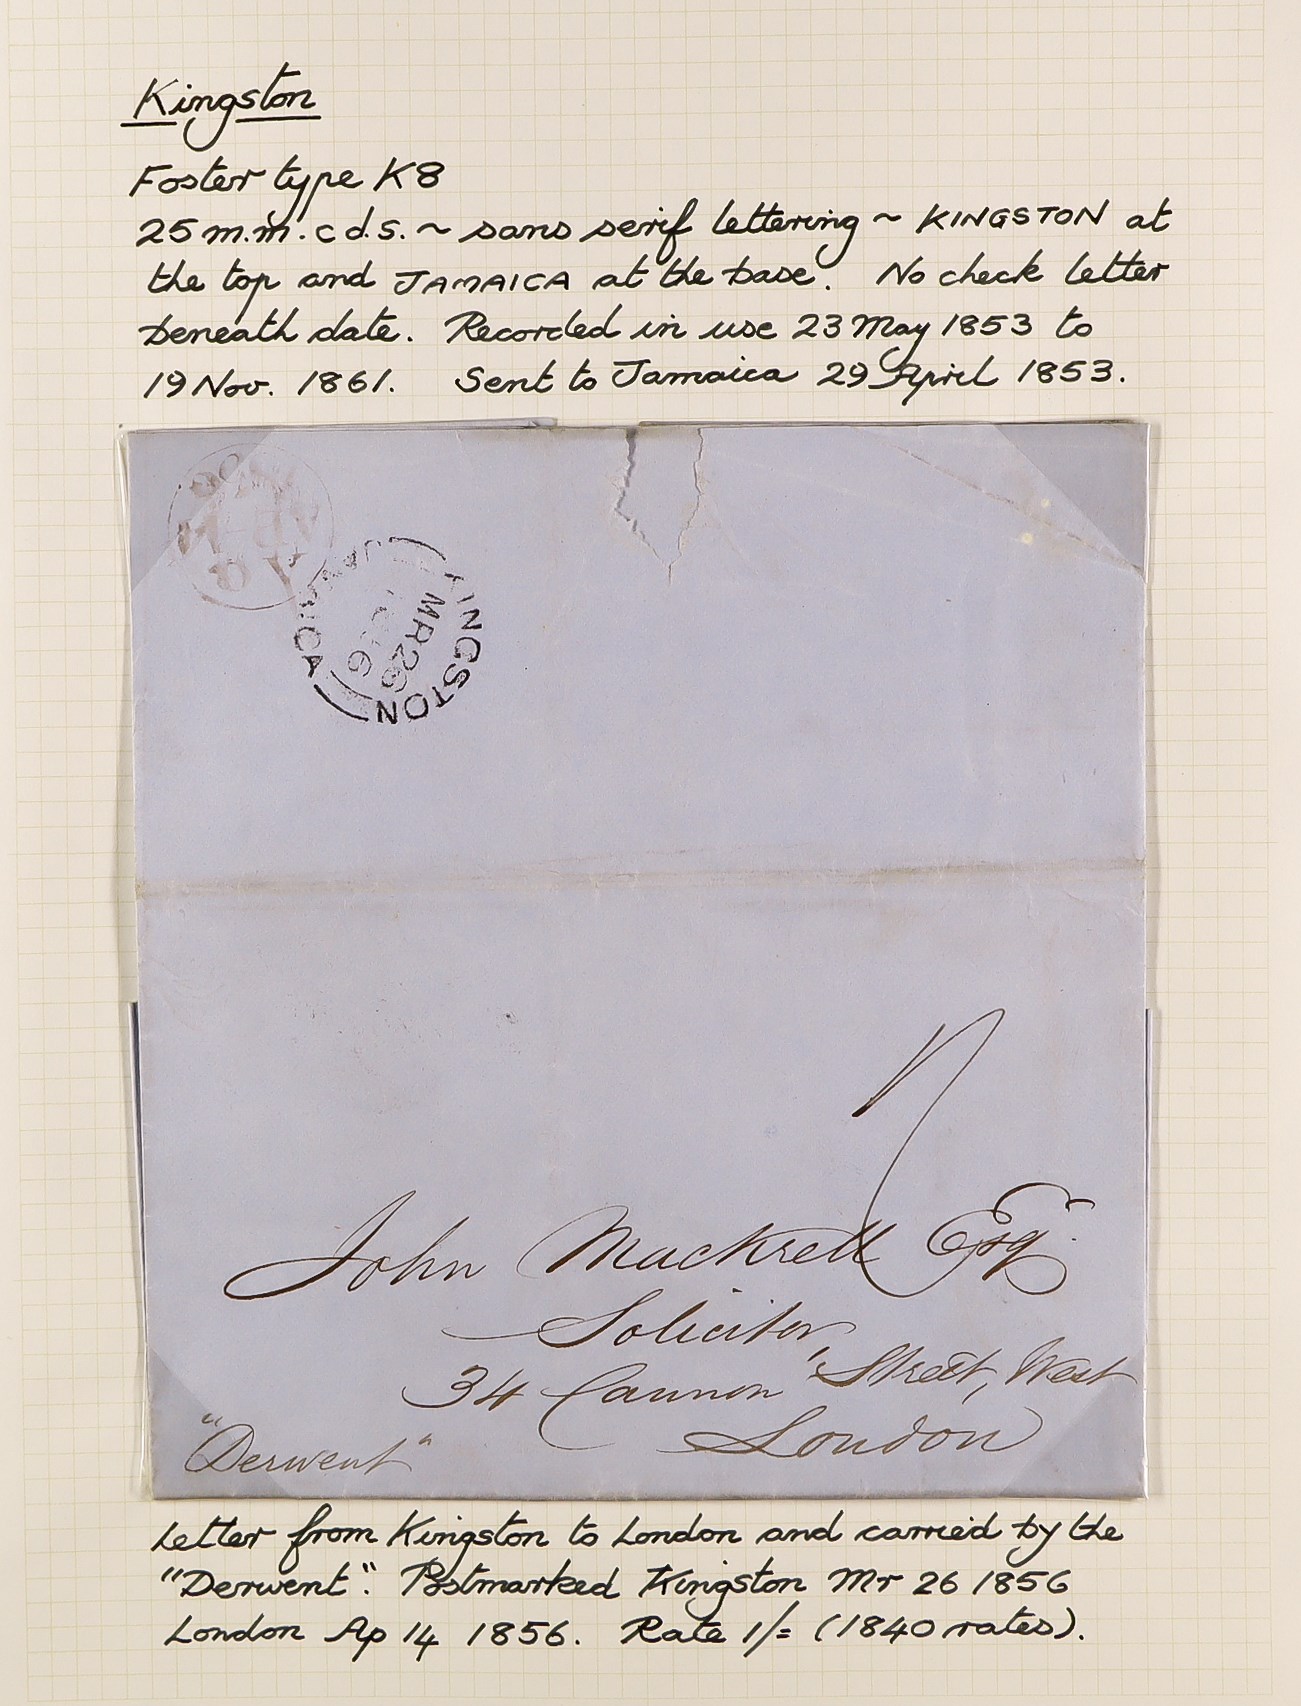 Kingston
Foster type K8
25 m.m. c d.s. ~ sans serif lettering ~ KINGSTON at
the top and JAMAICA at the base. No check letter
beneath date. Recorded in use 23 May 1853 to
19 Nov. 1861. Sent to Jamaica 29 April 1853.
KINGSTON
MR 26
JAMAICA
1
John Mackrell Esq
Solicitor
34 Cannon Street, West
London
"Derwent"
Letter from Kingston to London and carried by the
"Derwent". Postmarked Kingston Mr 26 1856
London Ap 14 1856. Rate 1/= (1840 rates).